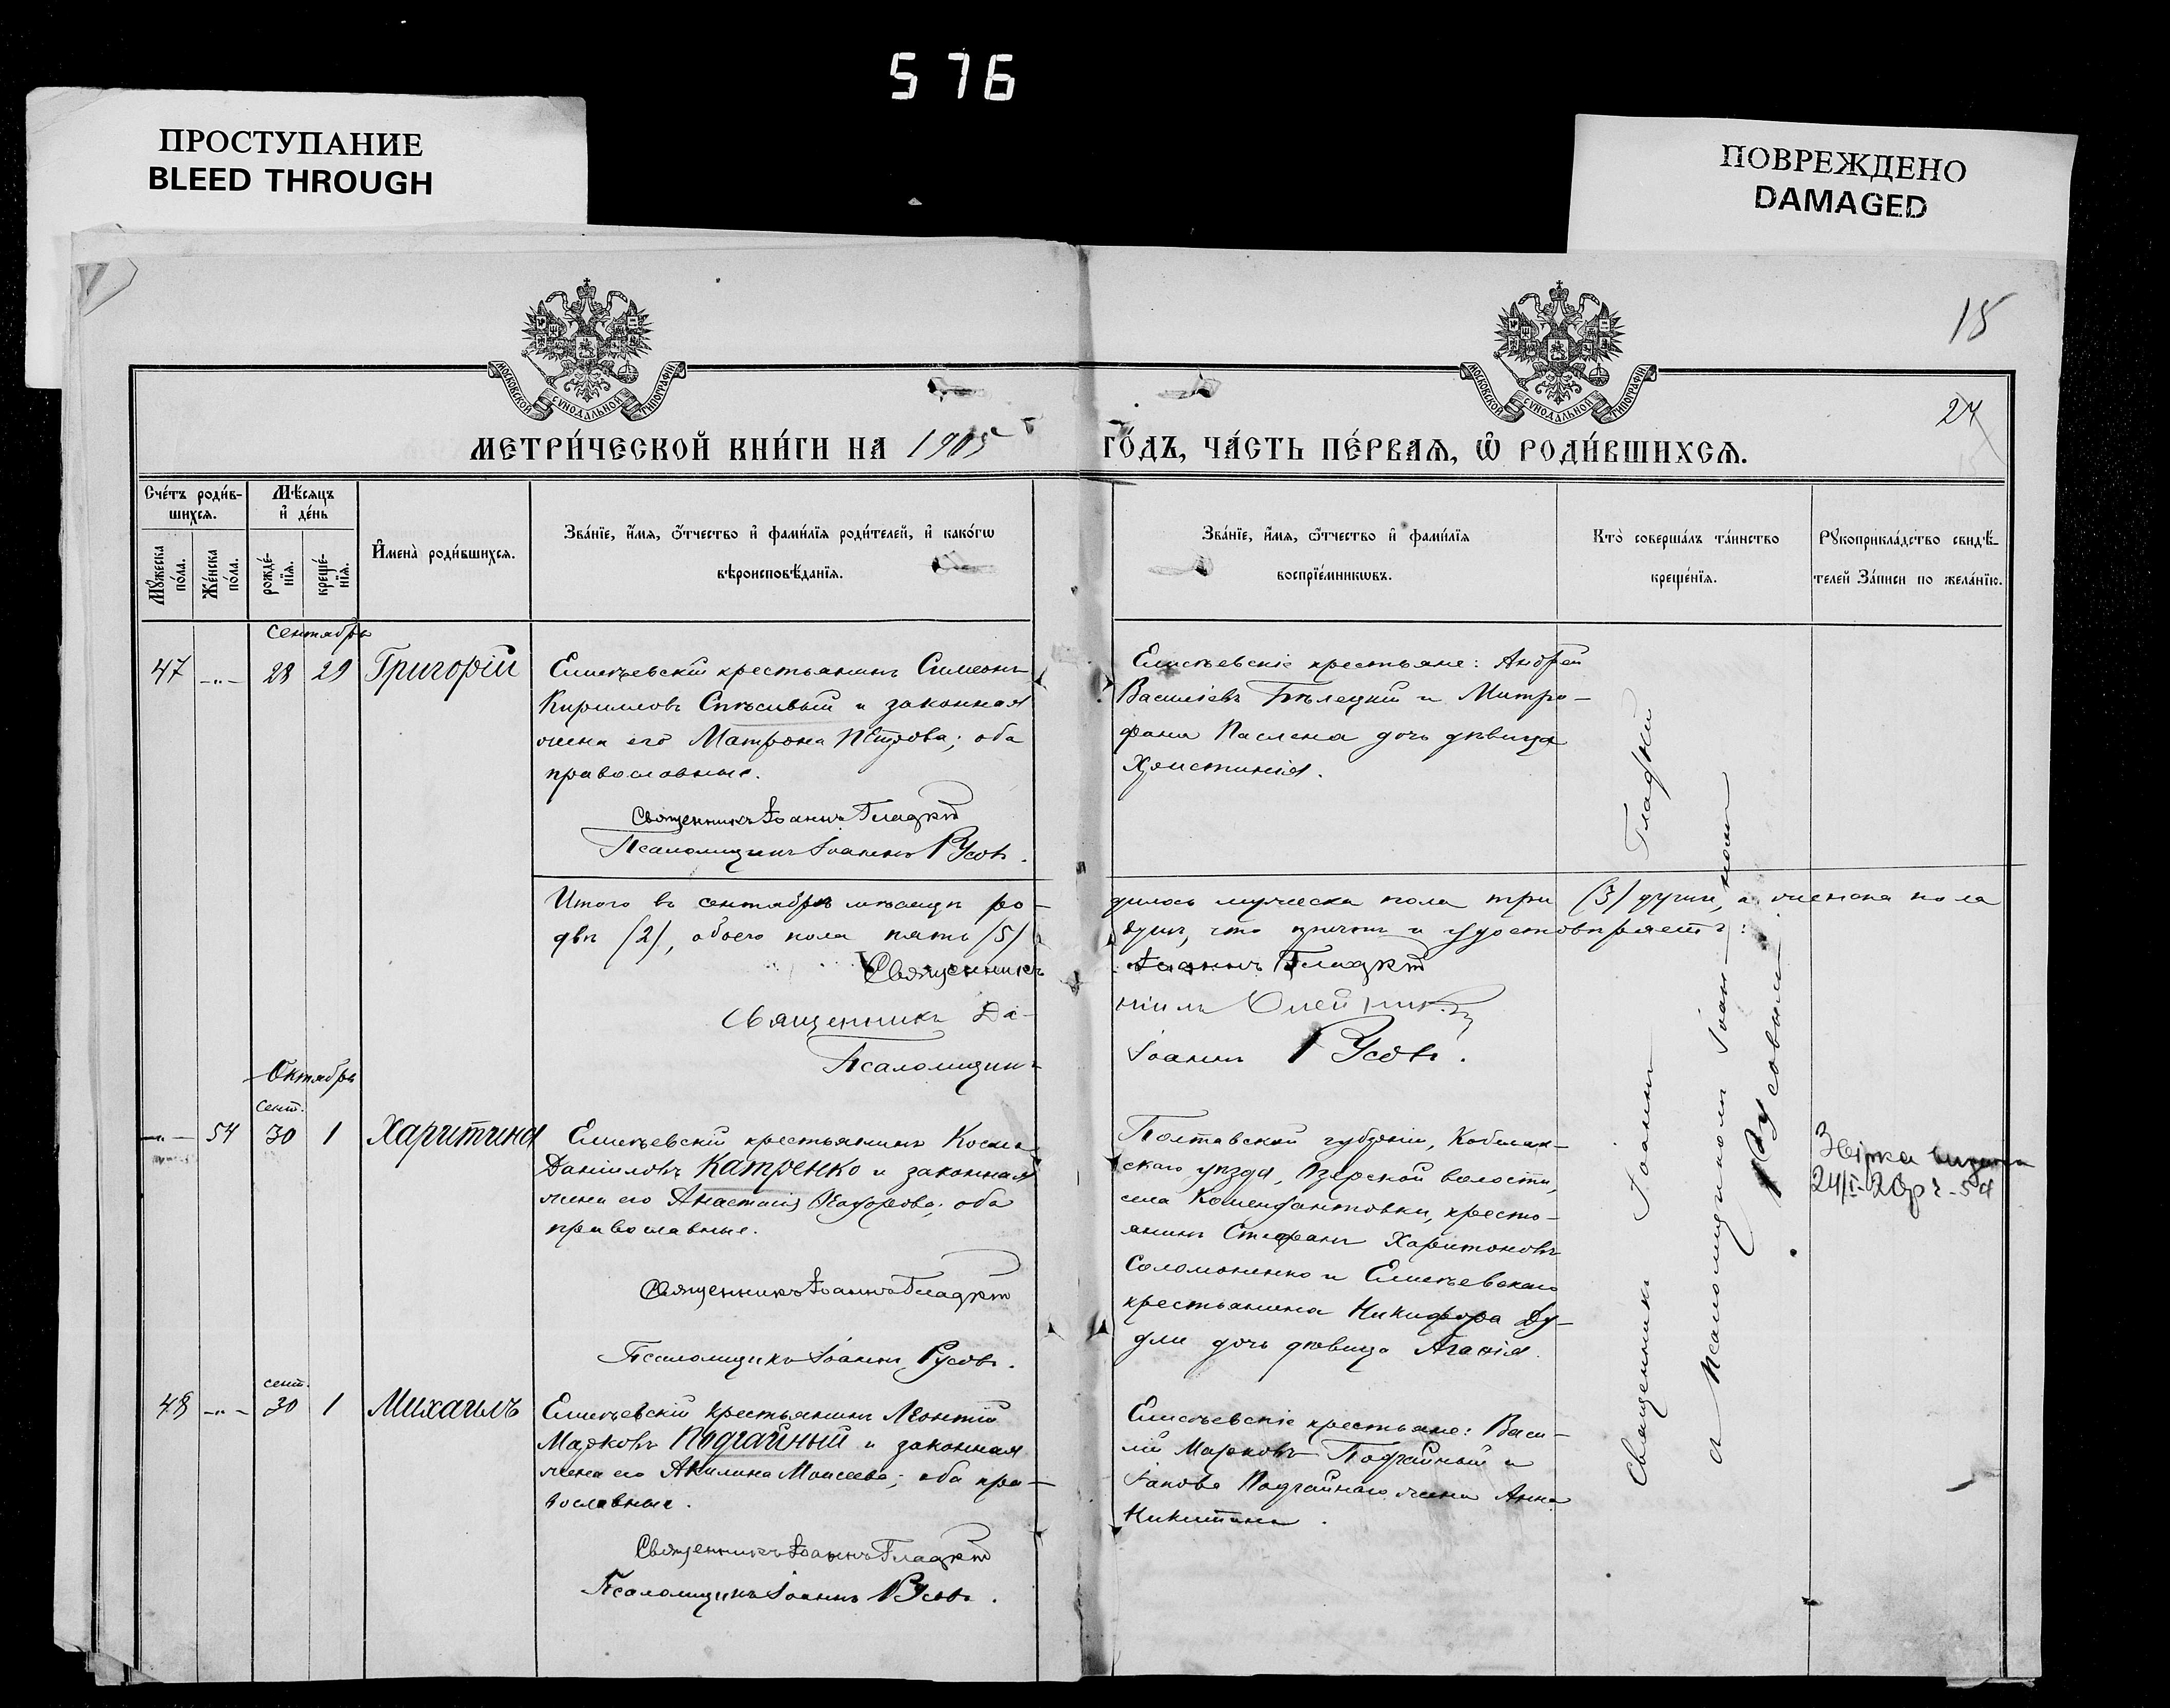 576
ПРОСТУПАНИЕ
BLEED THROUGH
ПОВРЕЖДЕНО
DAMAGED
15
24
МОСКОВСКОЙ СѴНОДАЛЬНОЙ ТИПОГРАФІИ
МОСКОВСКОЙ СѴНОДАЛЬНОЙ ТИПОГРАФІИ
МЕТРИ́ЧЕСКОЙ КНИ́ГИ НА 1905 ГО́ДЪ, ЧА́СТЬ ПЕ́РВАѦ, Ѡ҆ РОДИ́ВШИХСѦ.
Сче́тъ роди́в-
шихсѧ.
Мꙋ́жеска по́ла.
Же́нска по́ла.
Мѣ́сѧцъ
и҆ де́нь
рожде́-
нїѧ.
креще́-
нїѧ.
И҆мена̀ роди́вшихсѧ.
Зва́нїе, и҆́мѧ, ѻ҆́тчество и҆ фами́лїѧ роди́телей, и҆ како́гѡ
вѣроисповѣ́данїѧ.
Зва́нїе, и҆́мѧ, ѻ҆́тчество и҆ фами́лїѧ
воспрїе́мникѡвъ.
Кто̀ соверша́лъ та́инство
креще́нїѧ.
Рꙋкоприкла́дство свидѣ́-
телей За́писи по жела́нїю.
Сентябрь
47 -"- 28 29 Григорій
Крестьянинъ Симеонъ
Кирилловъ Спѣсивый и законная
жена его Матрона Петрова; оба
православные.
Священникъ Іоаннъ Гладкій
Псаломщикъ Іоаннъ Русовъ.
крестьяне: Андрей
Василіевъ Бѣлецкій и Митро-
фана Паслена дочь дѣвица
Христинія.
Итого въ сентябрѣ мѣсяцѣ ро-
дилось мужеска пола три (3) души, а женска пола
двѣ (2), обоего пола пять (5)
душъ, что причтъ и удостовѣряетъ:
Священникъ Іоаннъ Гладкій
Священникъ Да-
ніилъ Олейник
Псаломщикъ
Іоаннъ Русовъ.
Октябрь
сент.
-"- 54 30 1 Харитина
крестьянинъ Косма
Даніиловъ Катренко и законная
жена его Анастасія; оба
православные.
Священникъ Іоаннъ Гладкій
Псаломщикъ Іоаннъ Русовъ.
Полтавской губерніи, Кобеляк-
скаго уѣзда, Озерской волости,
села Комендантовки, кресть-
янинъ Стефанъ Харитоновъ
Соломоненко и
крестьянина Никифора Ду-
дли дочь дѣвица Агаѳія.
24/I
сент.
48 -"- 30 1 Михаилъ
крестьянинъ Леонтій
Марковъ Подгайный и законная
жена его Акилина Моисеева; оба пра-
вославные.
Священникъ Іоаннъ Гладкій
Псаломщикъ Іоаннъ Русовъ.
крестьяне: Васи-
лій Марковъ Подгайный и
Іакова Подгайнаго жена Анна
Никитина.
Священникъ Іоаннъ Гладкій
съ псаломщикомъ Іоан-
номъ Русовымъ.